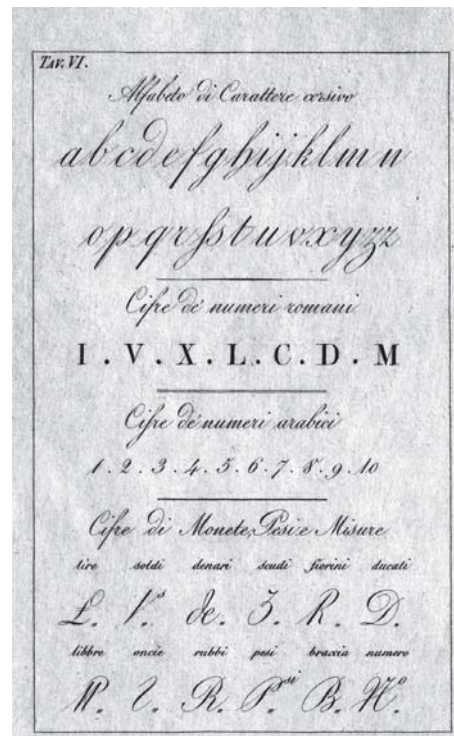 TAV. VI.
Alfabeto di Carattere corsivo
a b c d e f g h i j k l m n
o p q r ſ s t u v x y z z
Cifre de' numeri romani
I . V . X . L . C . D . M
Cifre de' numeri arabici
1 . 2 . 3 . 4 . 5 . 6 . 7 . 8 . 9 . 10
Cifre di Monete, Pesi e Misure
lire soldi denari scudi fiorini ducati
£. de. R. D.
libbre oncie rubbi pesi braccia numero
R. P.si B. N.o